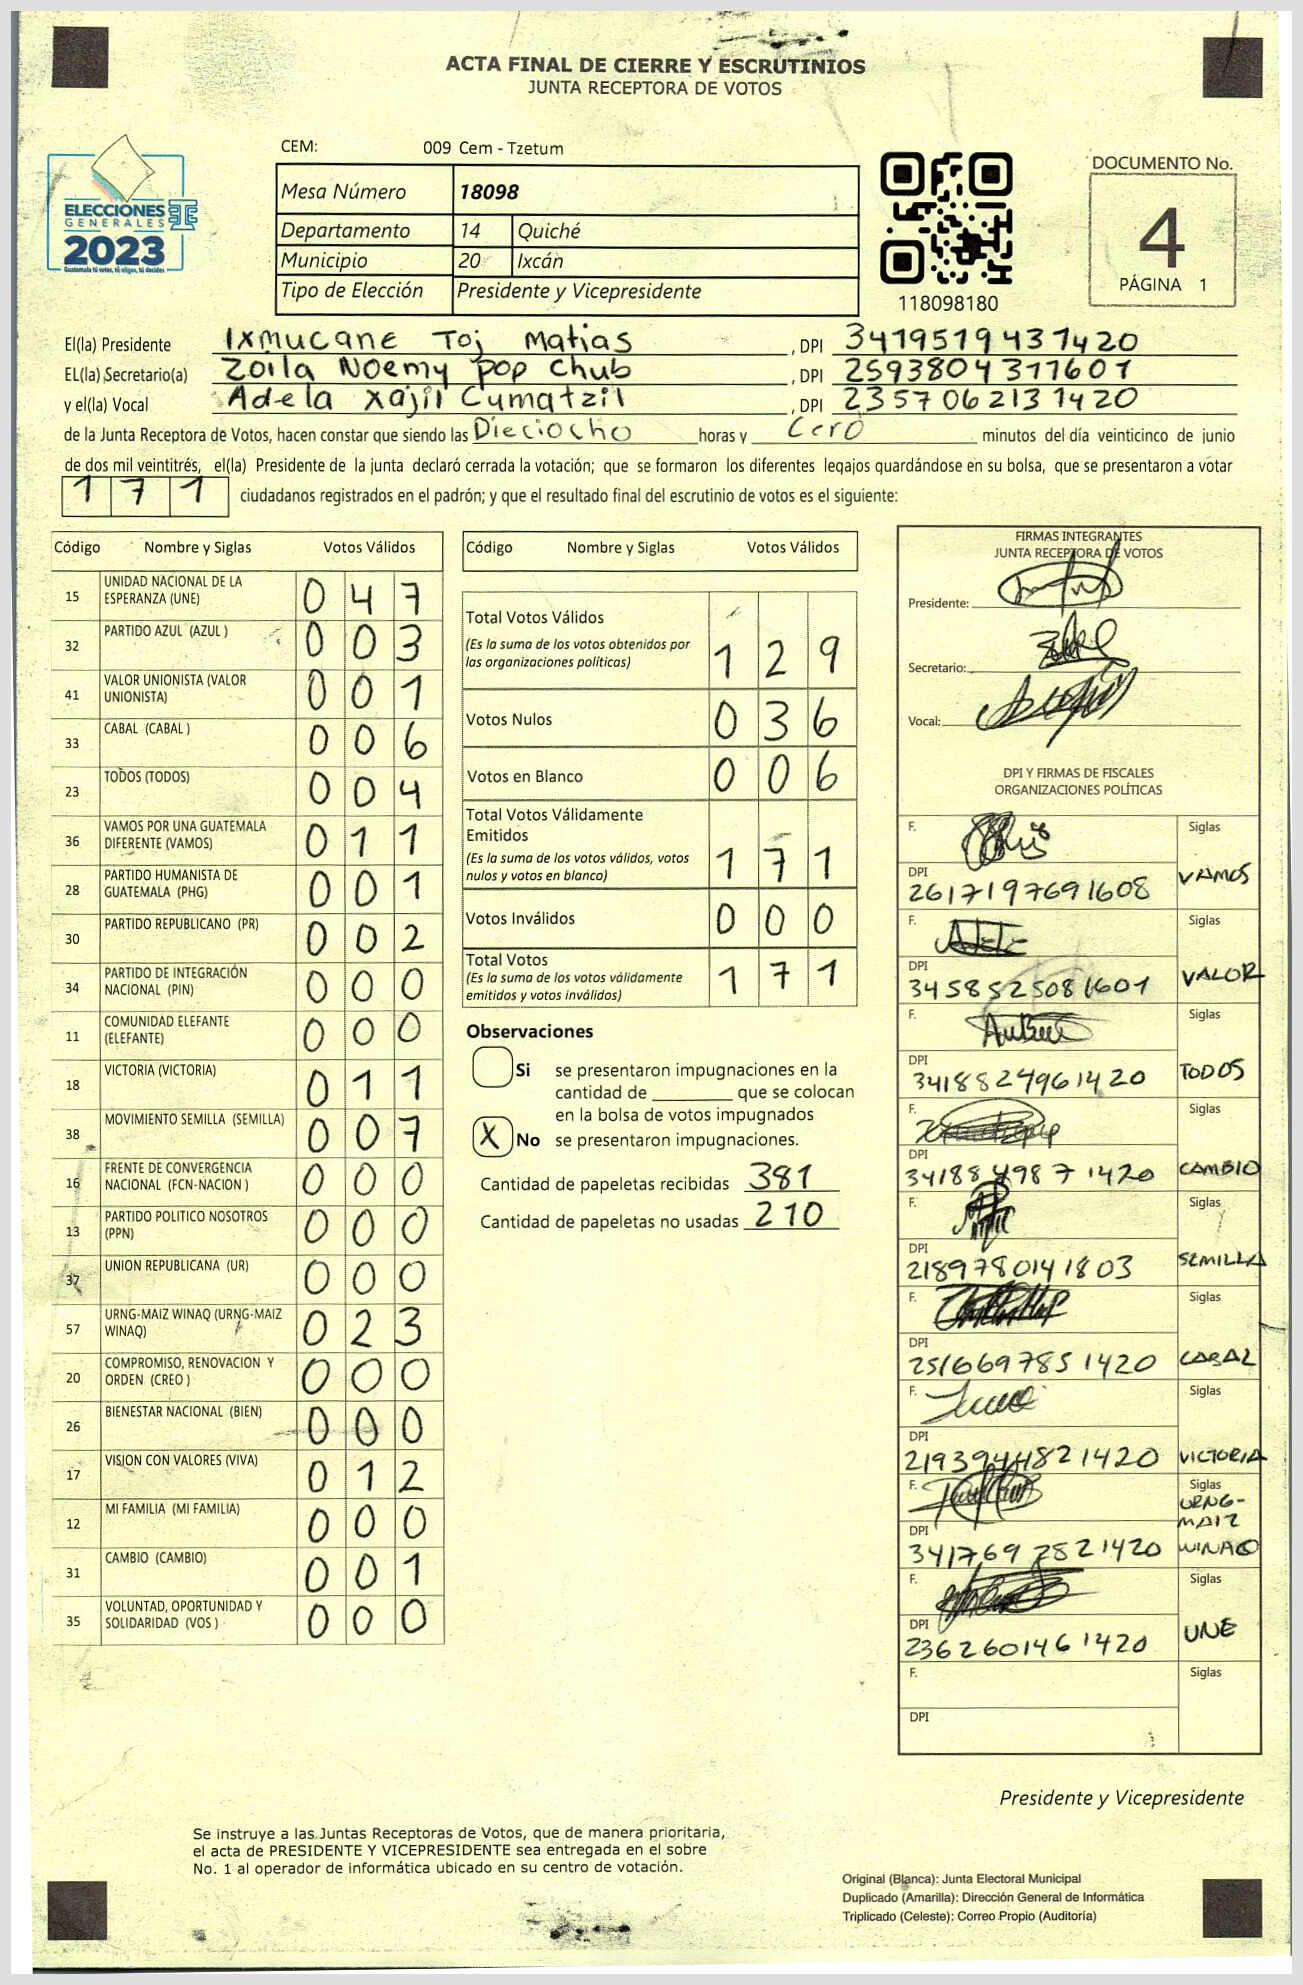 ACTA FINAL DE CIERRE Y ESCRUTINIOS
JUNTA RECEPTORA DE VOTOS
CEM: 009 Cem - Tzetum
Mesa Número 18098
Departamento 14 Quiché
Municipio 20 Ixcán
Tipo de Elección Presidente y Vicepresidente
ELECCIONES
GENERALES TSE
2023
Guatemala tú votas, tú eliges, tú decides
118098180
DOCUMENTO No.
4
PÁGINA 1
El(la) Presidente Ixmucane Toj Matias , DPI 3419519431420
EL(la) Secretario(a) Zoila Noemy pop Chub , DPI 2593804311601
y el(la) Vocal Adela Xajil Cumatzil , DPI 2357062131420
de la Junta Receptora de Votos, hacen constar que siendo las Dieciocho horas y Cero minutos del día veinticinco de junio
de dos mil veintitrés, el(la) Presidente de la junta declaró cerrada la votación; que se formaron los diferentes legajos guardándose en su bolsa, que se presentaron a votar
171 ciudadanos registrados en el padrón; y que el resultado final del escrutinio de votos es el siguiente:
Código Nombre y Siglas Votos Válidos
15 UNIDAD NACIONAL DE LA
ESPERANZA (UNE) 0 4 7
32 PARTIDO AZUL (AZUL ) 0 0 3
41 VALOR UNIONISTA (VALOR
UNIONISTA) 0 0 1
33 CABAL (CABAL ) 0 0 6
23 TODOS (TODOS) 0 0 4
36 VAMOS POR UNA GUATEMALA
DIFERENTE (VAMOS) 0 1 1
28 PARTIDO HUMANISTA DE
GUATEMALA (PHG) 0 0 1
30 PARTIDO REPUBLICANO (PR) 0 0 2
34 PARTIDO DE INTEGRACIÓN
NACIONAL (PIN) 0 0 0
11 COMUNIDAD ELEFANTE
(ELEFANTE) 0 0 0
18 VICTORIA (VICTORIA) 0 1 1
38 MOVIMIENTO SEMILLA (SEMILLA) 0 0 7
16 FRENTE DE CONVERGENCIA
NACIONAL (FCN-NACION ) 0 0 0
13 PARTIDO POLITICO NOSOTROS
(PPN) 0 0 0
37 UNION REPUBLICANA (UR) 0 0 0
57 URNG-MAIZ WINAQ (URNG-MAIZ
WINAQ) 0 2 3
20 COMPROMISO, RENOVACION Y
ORDEN (CREO ) 0 0 0
26 BIENESTAR NACIONAL (BIEN) 0 0 0
17 VISION CON VALORES (VIVA) 0 1 2
12 MI FAMILIA (MI FAMILIA) 0 0 0
31 CAMBIO (CAMBIO) 0 0 1
35 VOLUNTAD, OPORTUNIDAD Y
SOLIDARIDAD (VOS ) 0 0 0
Código Nombre y Siglas Votos Válidos
Total Votos Válidos
(Es la suma de los votos obtenidos por
las organizaciones políticas) 1 2 9
Votos Nulos 0 3 6
Votos en Blanco 0 0 6
Total Votos Válidamente
Emitidos
(Es la suma de los votos válidos, votos
nulos y votos en blanco) 1 7 1
Votos Inválidos 0 0 0
Total Votos
(Es la suma de los votos válidamente
emitidos y votos inválidos) 1 7 1
Observaciones
Si se presentaron impugnaciones en la
cantidad de ________ que se colocan
en la bolsa de votos impugnados
X No se presentaron impugnaciones.
Cantidad de papeletas recibidas 381
Cantidad de papeletas no usadas 210
FIRMAS INTEGRANTES
JUNTA RECEPTORA DE VOTOS
Presidente:
Secretario:
Vocal:
DPI Y FIRMAS DE FISCALES
ORGANIZACIONES POLÍTICAS
F. Siglas
DPI VAMOS
2617197691608
F. Siglas
DPI VALOR
3458525081601
F. Siglas
DPI TODOS
3418824961420
F. Siglas
DPI CAMBIO
3418849871420
F. Siglas
DPI SEMILLA
2189780141803
F. Siglas
DPI CABAL
2516697851420
F. Siglas
DPI VICTORIA
2193944821420
F. Siglas
URNG-
MAIZ
DPI WINAQ
3417692821420
F. Siglas
DPI UNE
2362601461420
F. Siglas
DPI
Presidente y Vicepresidente
Se instruye a las Juntas Receptoras de Votos, que de manera prioritaria,
el acta de PRESIDENTE Y VICEPRESIDENTE sea entregada en el sobre
No. 1 al operador de informática ubicado en su centro de votación.
Original (Blanca): Junta Electoral Municipal
Duplicado (Amarilla): Dirección General de Informática
Triplicado (Celeste): Correo Propio (Auditoría)